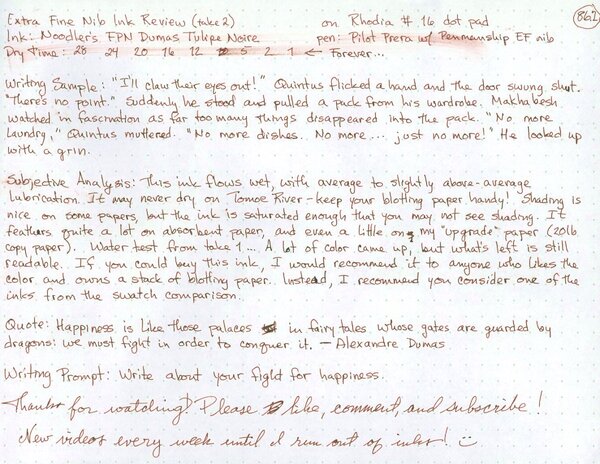 Extra Fine Nib Ink Review (take 2) on Rhodia # 16 dot pad 862
Ink: Noodler's FPN Dumas Tulipe Noire pen: Pilot Prera w/ Penmanship EF nib
Dry Time: 28 24 20 16 12 5 2 1 ← Forever...
Writing Sample: "I'll claw their eyes out!" Quintus flicked a hand and the door swung shut.
"There's no point." Suddenly he stood and pulled a pack from his wardrobe. Makhabesh
watched in fascination as far too many things disappeared into the pack. "No more
laundry," Quintus muttered. "No more dishes. No more .... just no more!" He looked up
with a grin.
Subjective Analysis: This ink flows wet, with average to slightly above-average
lubrication. It may never dry on Tomoe River - keep your blotting paper handy! Shading is
nice on some papers, but the ink is saturated enough that you may not see shading. It
feathers quite a lot on absorbent paper, and even a little on my "upgrade" paper (20lb
copy paper). Water test from take 1 ... A lot of color came up, but what's left is still
readable. If you could buy this ink, I would recommend it to anyone who likes the
color and owns a stack of blotting paper. Instead, I recommend you consider one of the
inks from the swatch comparison.
Quote: Happiness is like those palaces in fairy tales whose gates are guarded by
dragons: we must fight in order to conquer it. — Alexandre Dumas
Writing Prompt: Write about your fight for happiness.
Thanks for watching! Please like, comment, and subscribe!
New videos every week until I run out of inks! :)